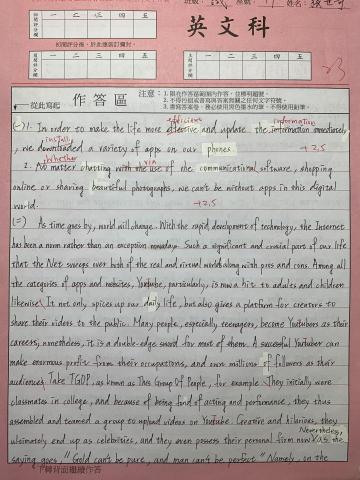 一 二 三 四 五
初閱評分欄
初閱評分後,於此處裝訂彌封。
英文科
一 二 三 四 五
一 二 三 四 五
23
從此寫起
作答區
注意:1.限在作答區範圍內作答,並標明題號。
(一) 1. In order to make the life more effective and update the information immediately
efficient
information
, we downloaded a variety of apps on our phones
install
+2.5
2. No matter chatting with the use of the communicational software, shopping
Whether
via
online or sharing beautiful photographs, we can't be without apps in this digital
world.
+2.5
(二) As time goes by, world will change. With the rapid development of technology, the Internet
has been a norm rather than an exception nowadays. Such a significant and crucial part of our life
that the Net sweeps over both of the real and virtual worlds along with pros and cons. Among all
the categories of apps and websites, Youtube, particularly, is now a hit to adults and children
likewise. It not only spices up our daily life, but also gives a platform for creators to
share their videos to the public. Many people, especially teenagers, become Youtubers as their
careers; nonetheless, it is a double-edge sword for most of them. A successful Youtuber can
make enormous profit from their occupations, and own millions of followers as their
audiences. Take TGOP, as known as This Group Of People, for example. They initially were
classmates in college, and because of being fond of acting and performance, they thus
assembled and teamed a group to upload videos on Youtube. Creative and hilarious, they
ultimately end up as celebrities, and they even possess their personal firm now. As the
Nevertheless,
saying goes, "Gold can't be pure, and man can't be perfect." Namely, on the
轉背面繼續作答